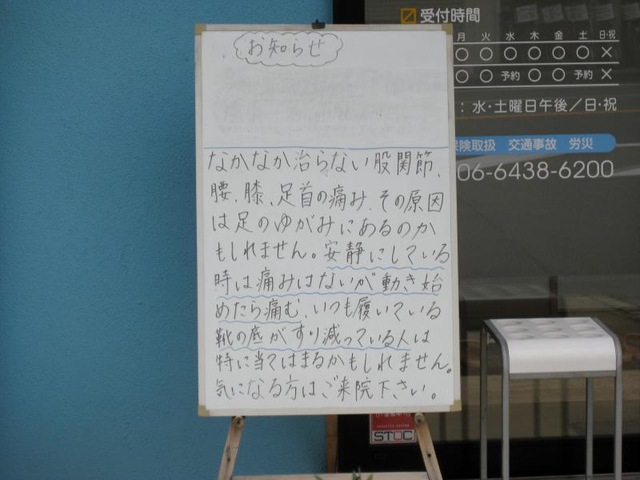 お知らせ
なかなか治らない股関節、
腰、膝、足首の痛み、その原因
は足のゆがみにあるのか
もしれません。安静にしている
時は痛みはないが動き始
めたら痛む、いつも履いている
靴の底がすり減っている人は
特に当てはまるかもしれません。
気になる方はご来院下さい。
受付時間
月 火 水 木 金 土 日・祝
○ ○ ○ ○ ○ ○ ×
○ ○ 予約 ○ ○ 予約 ×
：水・土曜日午後／日・祝
険取扱 交通事故 労災
06-6438-6200